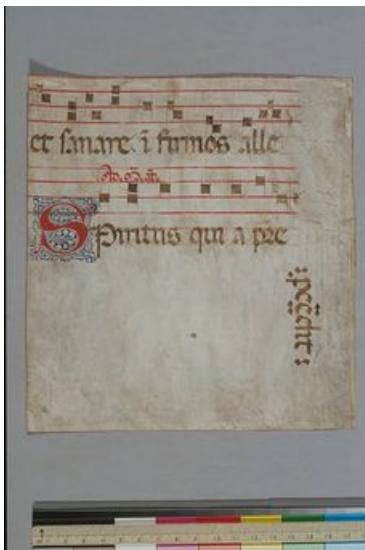 et sanare. ī firmos alle
Spiritus qui a pr̄e
:pcedit: